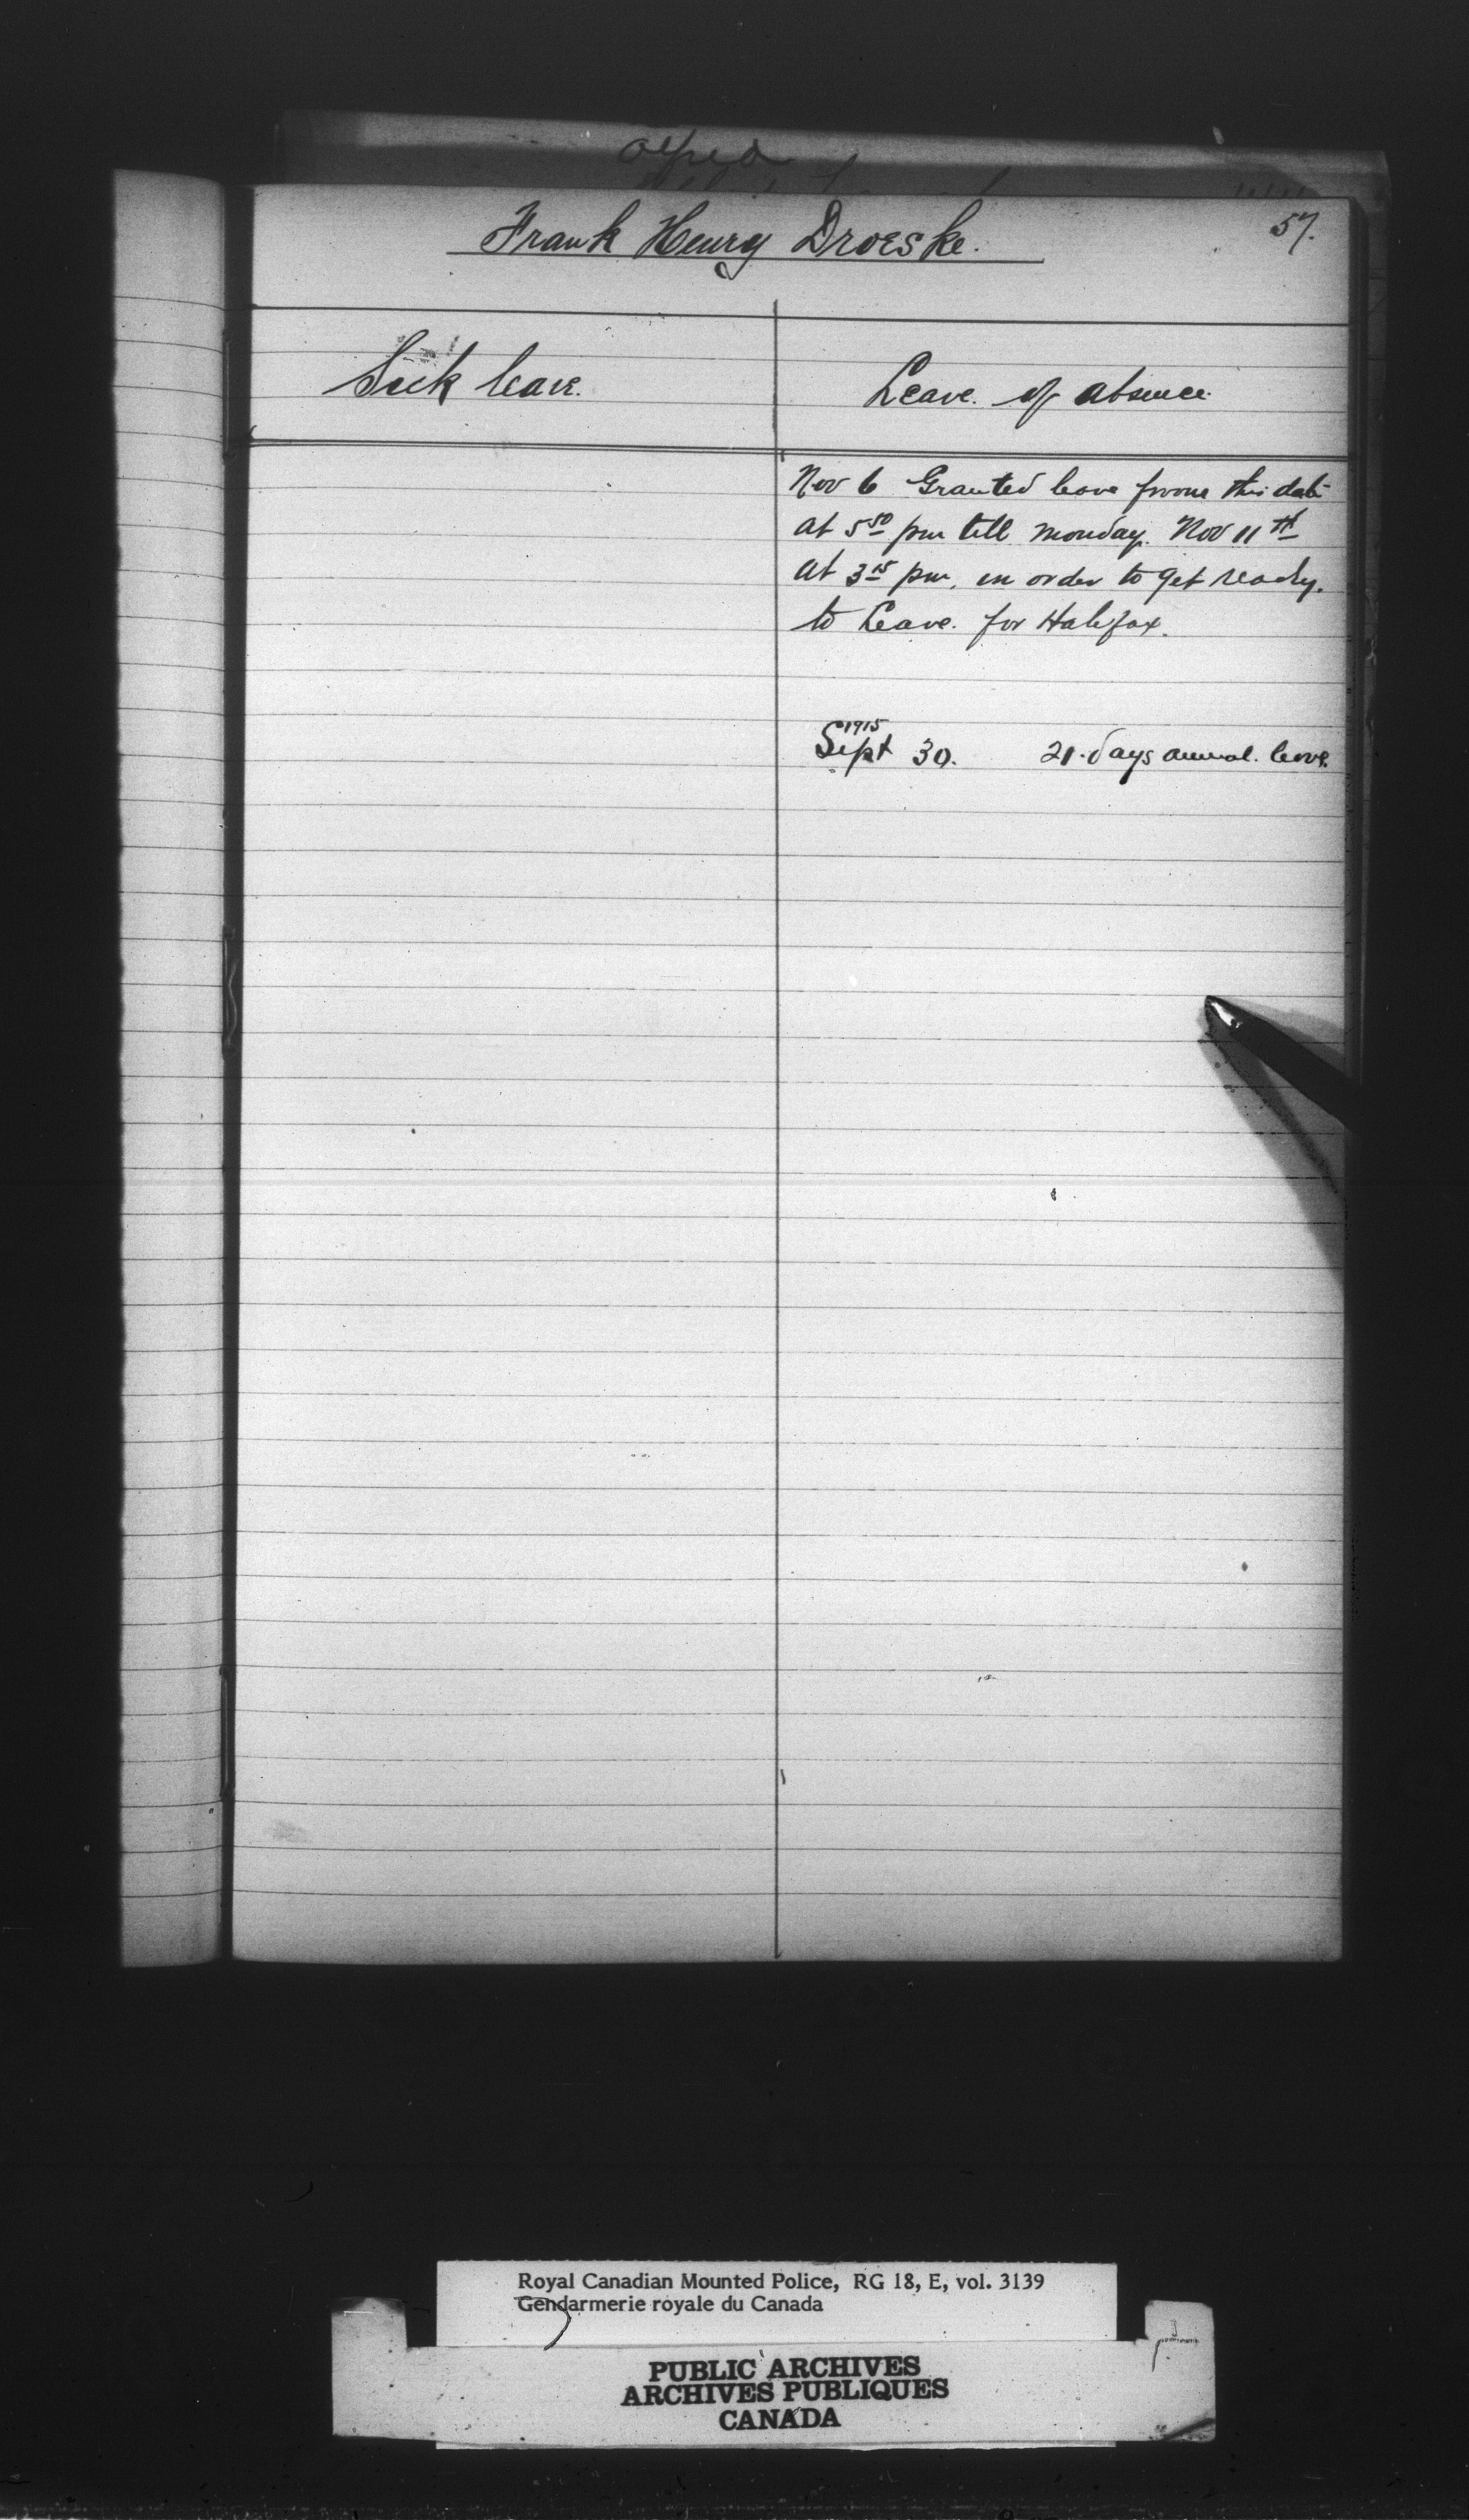 57.
Frank Henry Droeske.
Sick leave.
Leave. of absence.
Nov 6 Granted leave from this date
at 5 50 pm till monday. Nov 11th
at 3 15 pm, in order to get ready.
to Leave. for Halifax.
1915
Sept 30. 21 days annual. leave.
Royal Canadian Mounted Police, RG 18, E, vol. 3139
Gendarmerie royale du Canada
PUBLIC ARCHIVES
ARCHIVES PUBLIQUES
CANADA